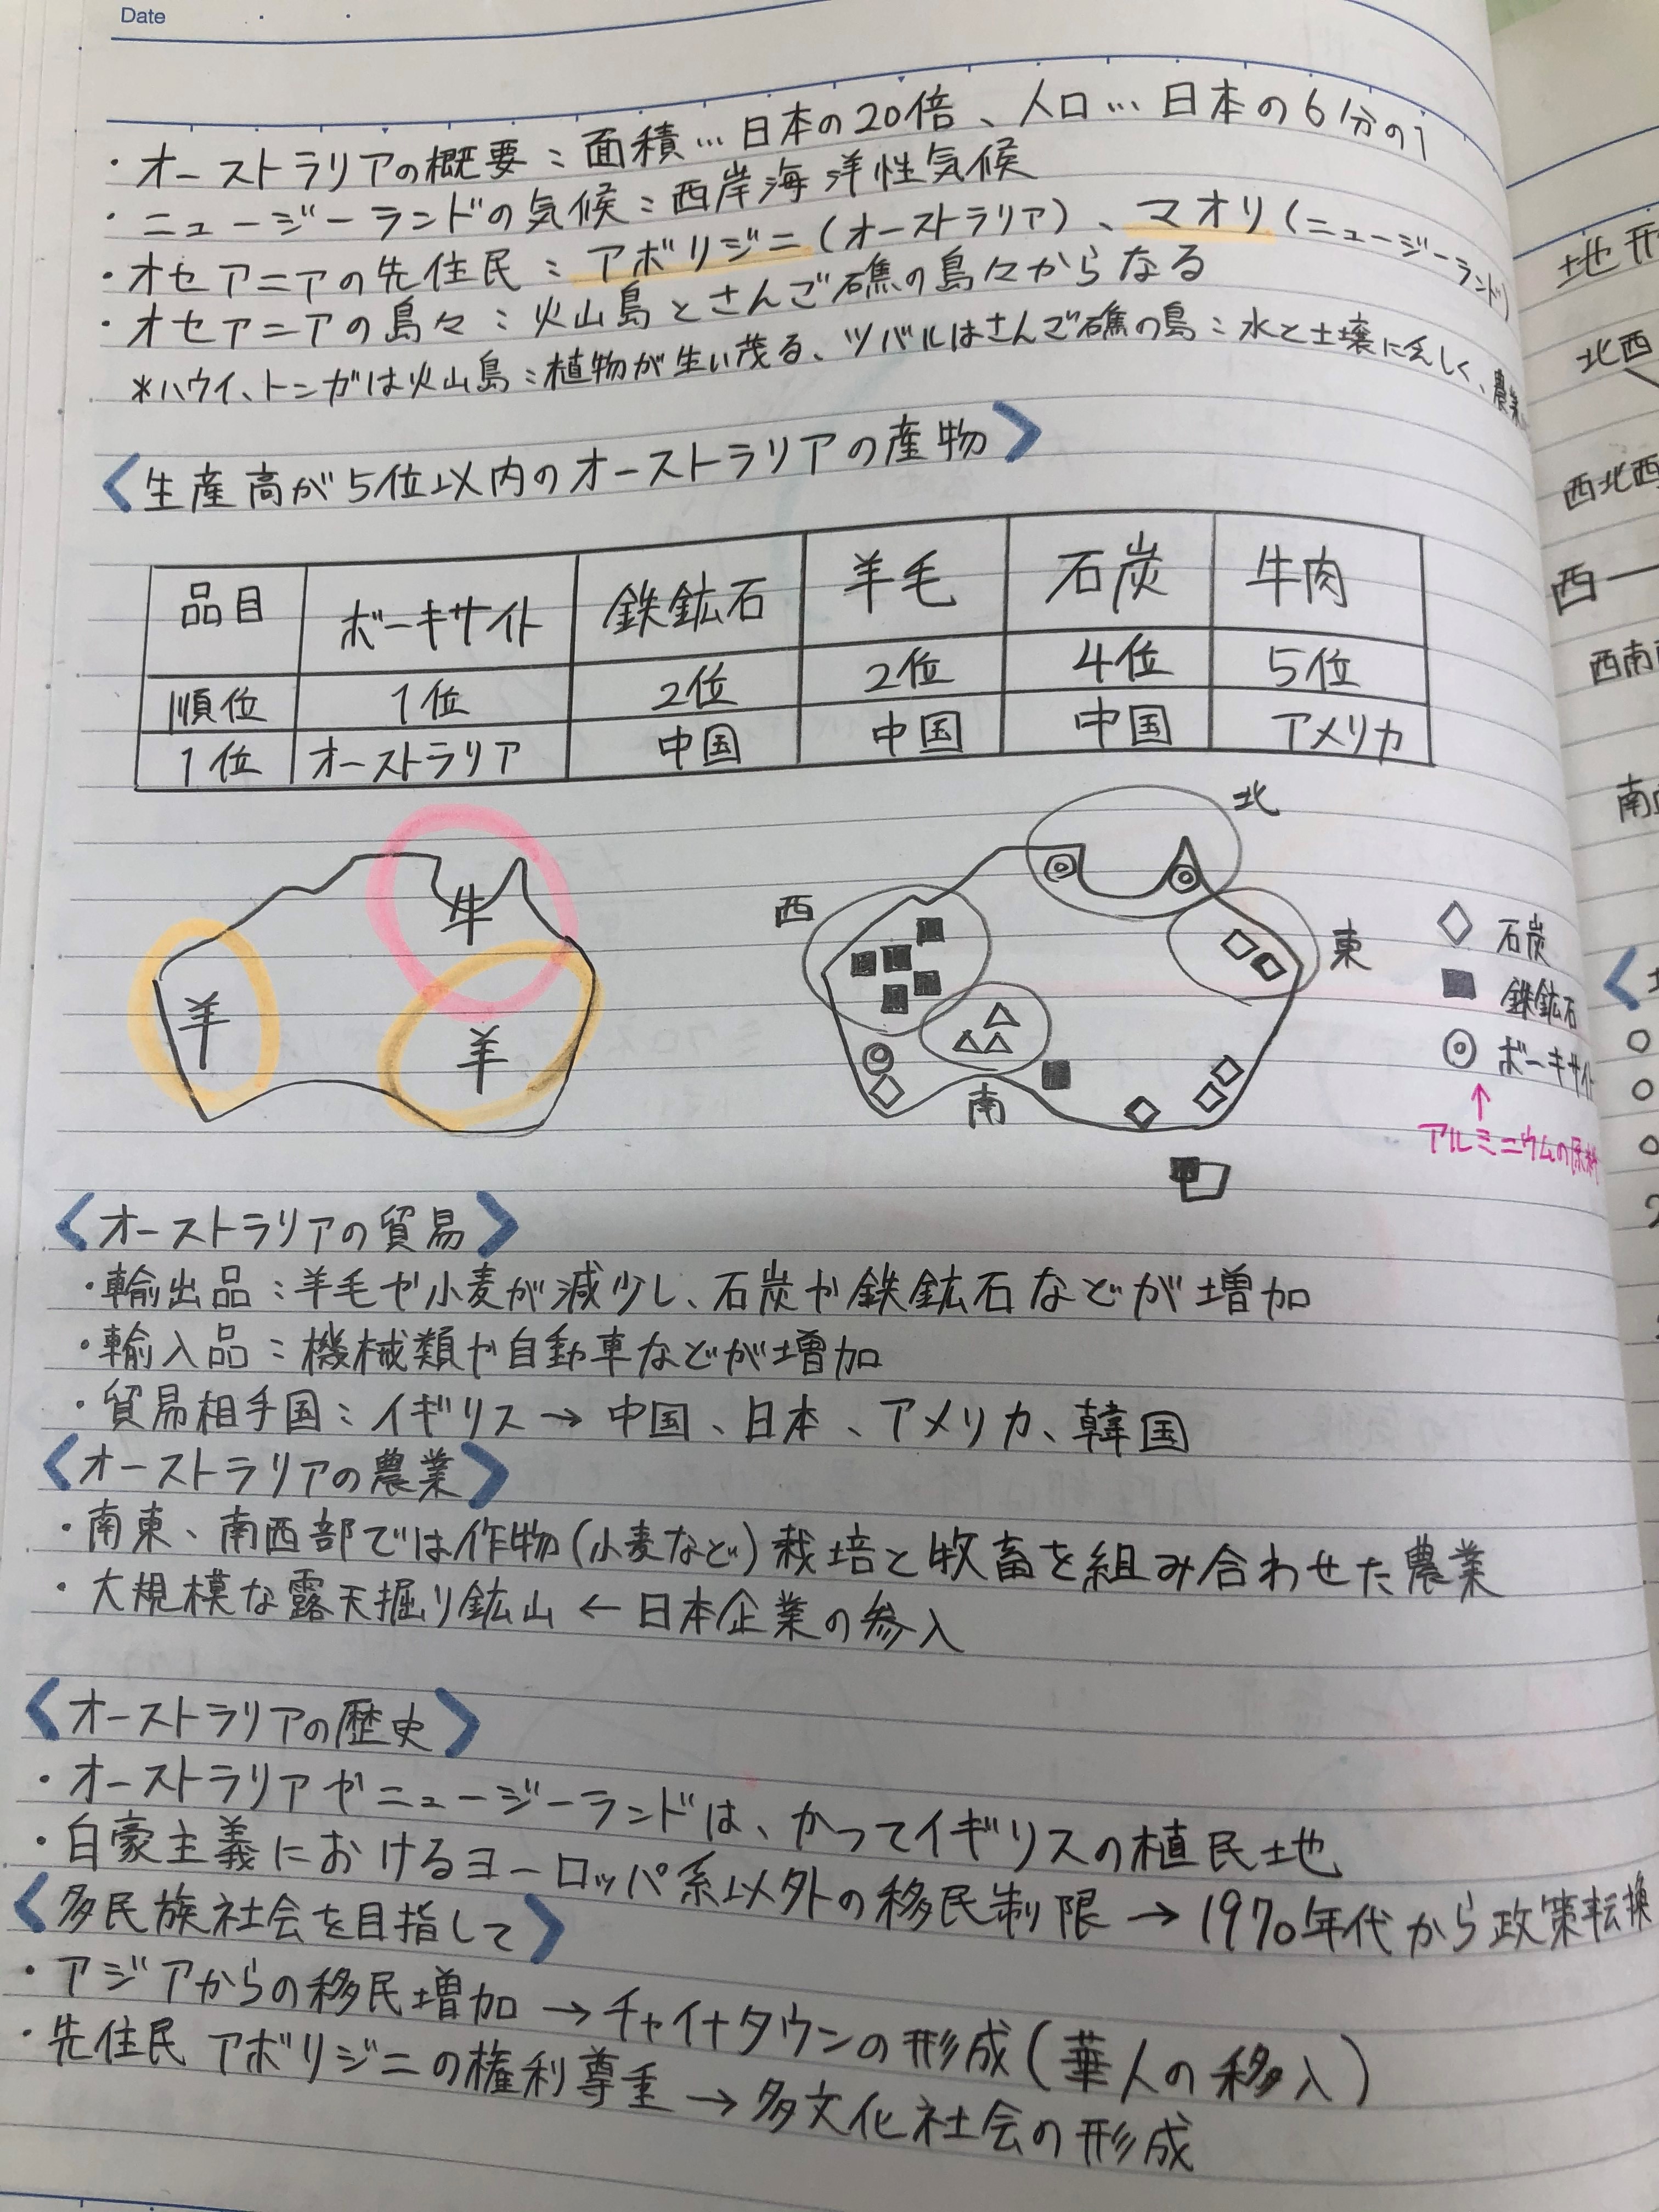 Date
・オーストラリアの概要：面積…日本の20倍、人口…日本の6分の1
・ニュージーランドの気候：西岸海洋性気候
・オセアニアの先住民：アボリジニ（オーストラリア）、マオリ（ニュージーランド）
・オセアニアの島々：火山島とさんご礁の島々からなる
＊ハワイ、トンガは火山島：植物が生い茂る、ツバルはさんご礁の島：水と土壌に乏しく、農業
〈生産高が5位以内のオーストラリアの産物〉
品目 ボーキサイト 鉄鉱石 羊毛 石炭 牛肉
順位 1位 2位 2位 4位 5位
1位 オーストラリア 中国 中国 中国 アメリカ
牛
羊
羊
北
西
東
南
◇ 石炭
■ 鉄鉱石
◎ ボーキサイト
↑
アルミニウムの原料
〈オーストラリアの貿易〉
・輸出品：羊毛や小麦が減少し、石炭や鉄鉱石などが増加
・輸入品：機械類や自動車などが増加
・貿易相手国：イギリス→中国、日本、アメリカ、韓国
〈オーストラリアの農業〉
・南東、南西部では作物（小麦など）栽培と牧畜を組み合わせた農業
・大規模な露天掘り鉱山←日本企業の参入
〈オーストラリアの歴史〉
・オーストラリアやニュージーランドは、かつてイギリスの植民地
・白豪主義におけるヨーロッパ系以外の移民制限→1970年代から政策転換
〈多民族社会を目指して〉
・アジアからの移民増加→チャイナタウンの形成（華人の移入）
・先住民アボリジニの権利尊重→多文化社会の形成
地形
北西
西北西
西
西南
南